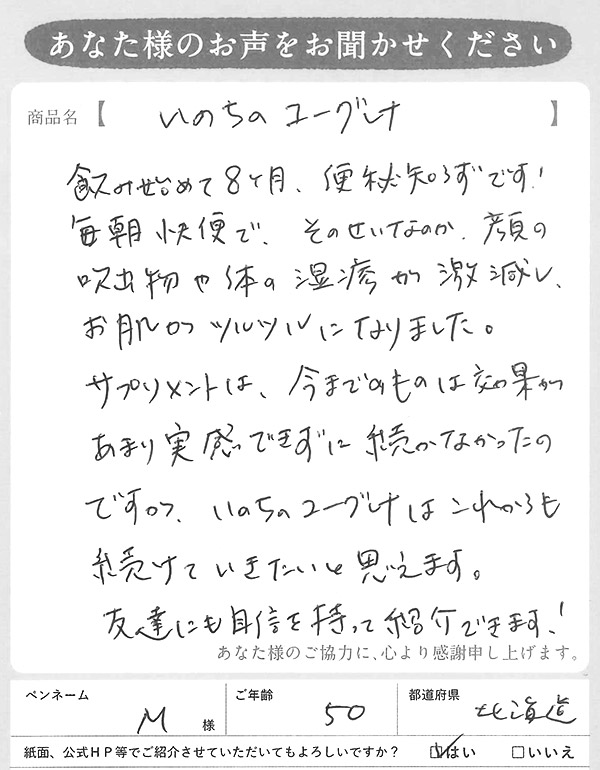 あなた様のお声をお聞かせください
商品名【 いのちのユーグレナ 】
飲み始めて8ヶ月、便秘知らずです!
毎朝快便で、そのせいなのか、顔の
吹出物や体の湿疹が激減し、
お肌がツルツルになりました。
サプリメントは、今までのものは効果が
あまり実感できずに続かなかったの
ですが、いのちのユーグレナはこれからも
続けていきたいと思えます。
友達にも自信を持って紹介できます!
あなた様のご協力に、心より感謝申し上げます。
ペンネーム M 様 ご年齢 50 都道府県 北海道
紙面、公式HP等でご紹介させていただいてもよろしいですか? ☑はい □いいえ